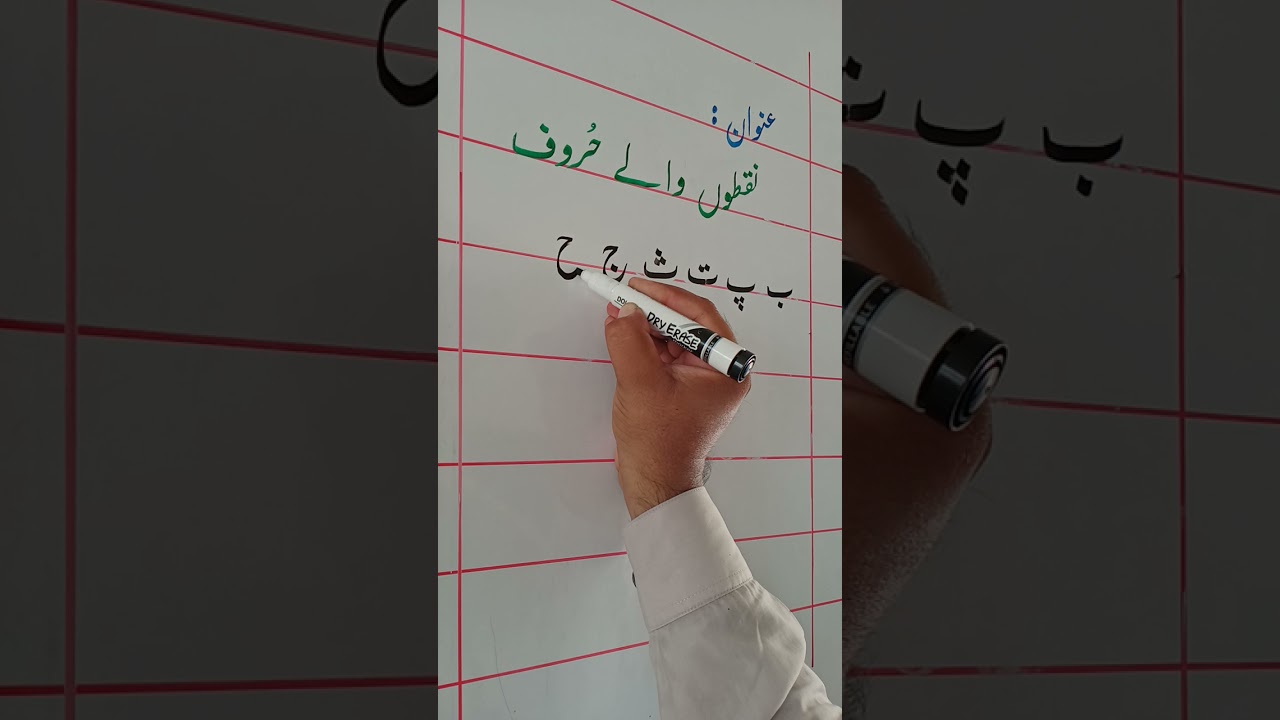 عنوان :
نقطوں والے حُروف
ب پ ت ث ج ح
DRY ERASE